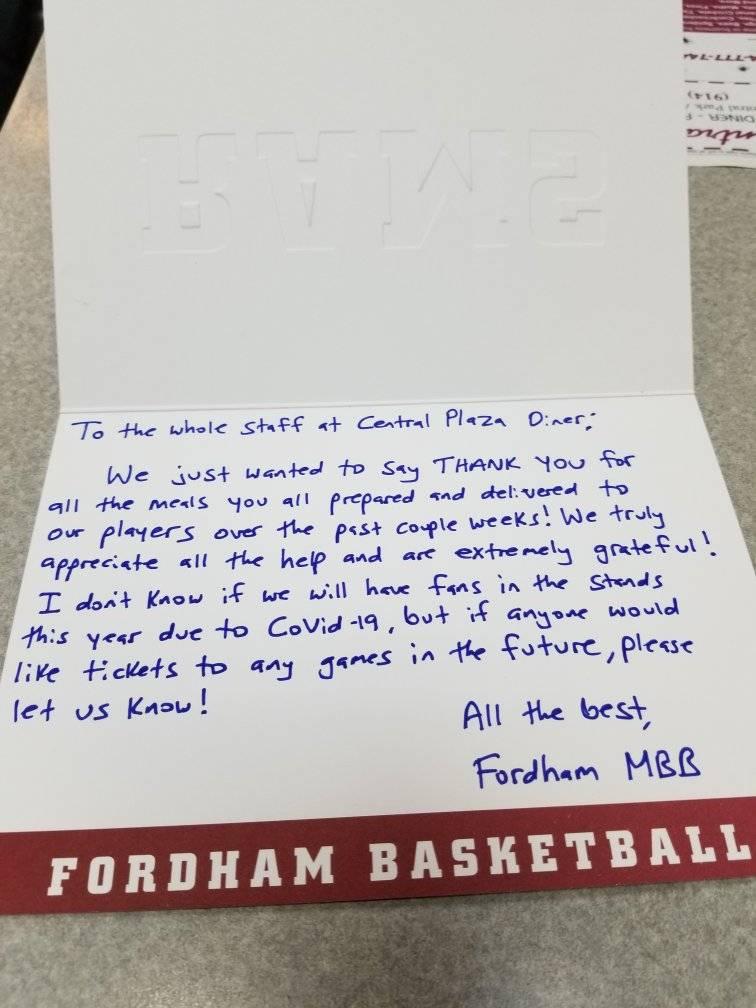 RAMS
To the whole staff at Central Plaza Diner;
We just wanted to say THANK YOU for
all the meals you all prepared and delivered to
our players over the past couple weeks! We truly
appreciate all the help and are extremely grateful!
I don't know if we will have fans in the stands
this year due to Covid-19, but if anyone would
like tickets to any games in the future, please
let us know!
All the best,
Fordham MBB
FORDHAM BASKETBALL
DINER -
(914)